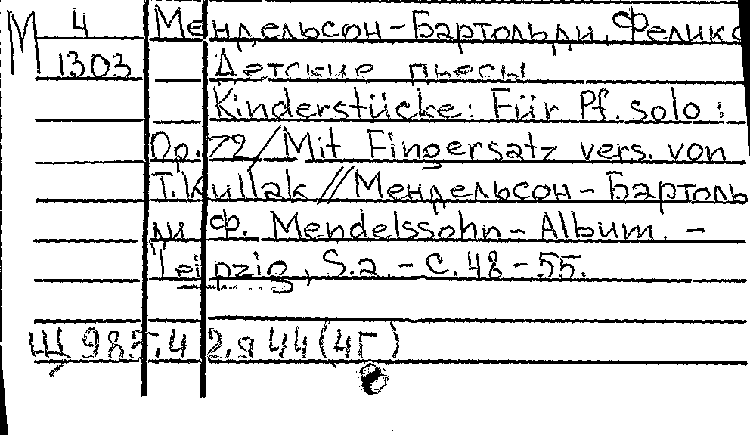 М 4 Мендельсон-Бартольди, Феликс
1303 Детские пьесы
Kinderstücke: Für Pf. solo:
Op. 72/Mit Fingersatz vers. von
T. Kullak//Мендельсон-Бартоль
ди Ф. Mendelssohn-Album. -
Leipzig, S.a. - С. 48-55.
Щ 985.42.я 44(4Г)